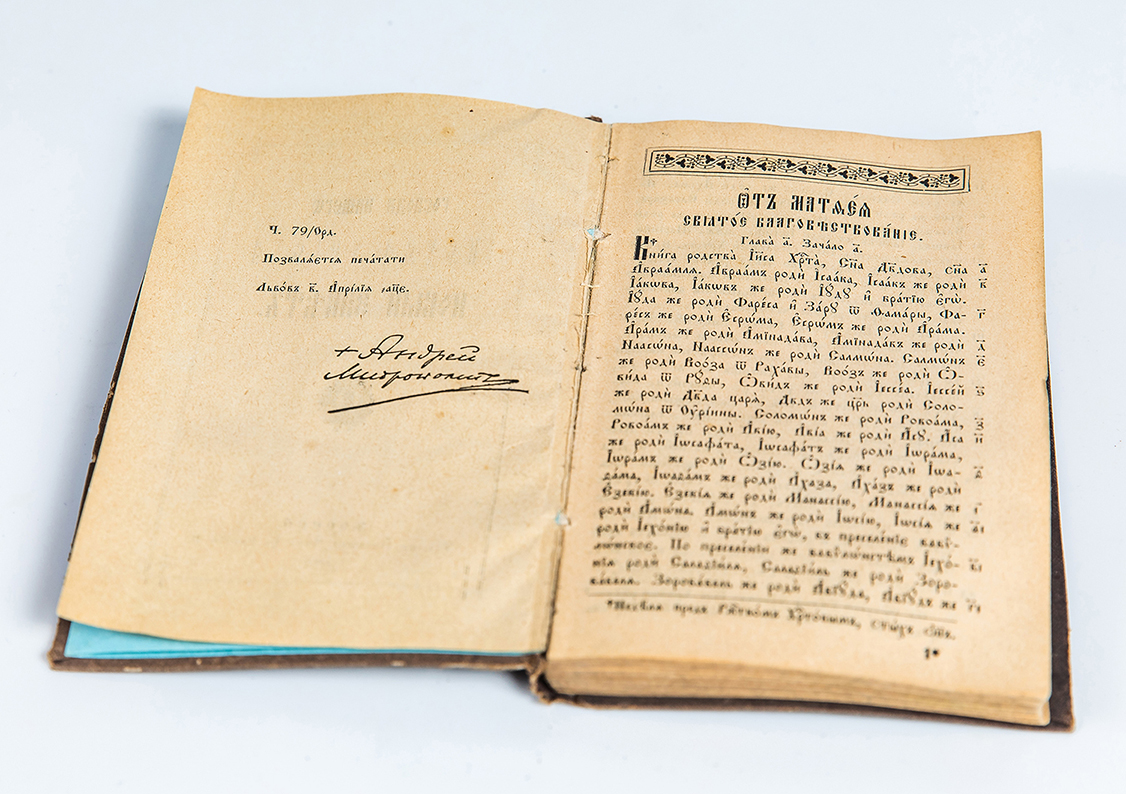 Ч. 79/Орд.
Позвалѧ́етсѧ печа́тати
Льво́въ к҃. А҆прі́лїѧ ҂ац҃е.
+ Андрей
Митрополитъ
Ѿ МАТѲЕ́Ѧ
СВѦТО́Е БЛАГОВѢСТВОВА́НІЕ.
Глава̀ а҃. Зача́ло а҃.
Кни́га родства̀ І҆и҃са Хр҃та̀, Сн҃а Дв҃дова, сн҃а а҃
А҆враа́млѧ. А҆враа́мъ родѝ І҆саа́ка, І҆саа́къ же родѝ в҃
І҆а́кѡва, І҆а́кѡвъ же родѝ І҆ꙋ́дꙋ и҆ бра́тїю є҆гѡ̀.
І҆ꙋ́да же родѝ Фаре́са и҆ За́рꙋ ѿ Ѳама́ры, Фа- г҃
ре́съ же родѝ Є҆срѡ́ма, Є҆срѡ́мъ же родѝ А҆ра́ма.
А҆ра́мъ же родѝ А҆мїнада́ва, А҆мїнада́въ же родѝ д҃
Наассѡ́на, Наассѡ́нъ же родѝ Салмѡ́на. Салмѡ́нъ є҃
же родѝ Воо́за ѿ Раха́вы, Воо́зъ же родѝ Ѡ҆-
ви́да ѿ Рꙋ́ѳы, Ѡ҆ви́дъ же родѝ І҆ессе́а. І҆ессе́й ѕ҃
же родѝ Дв҃да царѧ̀, Дв҃дъ же цр҃ь родѝ Соло-
мѡ́на ѿ Оу҆рі́ины. Соломѡ́нъ же родѝ Ровоа́ма, з҃
Ровоа́мъ же родѝ А҆ві́ю, А҆ві́а же родѝ А҆́сꙋ. А҆́са и҃
же родѝ І҆ѡсафа́та, І҆ѡсафа́тъ же родѝ І҆ѡра́ма,
І҆ѡра́мъ же родѝ Ѡ҆зі́ю. Ѡ҆зі́ѧ же родѝ І҆ѡа- ѳ҃
ѳа́ма, І҆ѡаѳа́мъ же родѝ А҆ха́за, А҆ха́зъ же родѝ
Є҆зекі́ю. Є҆зекі́ѧ же родѝ Манассі́ю, Манассі́ѧ же і҃
родѝ А҆мѡ́на. А҆мѡ́нъ же родѝ І҆ѡсі́ю, І҆ѡсі́ѧ же а҃і
родѝ І҆ехо́нїю и҆ бра́тїю є҆гѡ̀, въ преселе́нїе вавѵ-
лѡ́нское. По преселе́нїи же вавѵлѡ́нстѣмъ І҆ехо́- в҃і
нїа родѝ Салаѳі́илѧ, Салаѳі́иль же родѝ Зоро-
ва́велѧ. Зорова́вель же родѝ А҆вїꙋ́да, А҆вїꙋ́дъ же г҃і
*Недѣ́лѧ предъ Рж҃тво́мъ Хр҃то́вымъ, ст҃ы́хъ ѻ҆т҃е́цъ.
1*